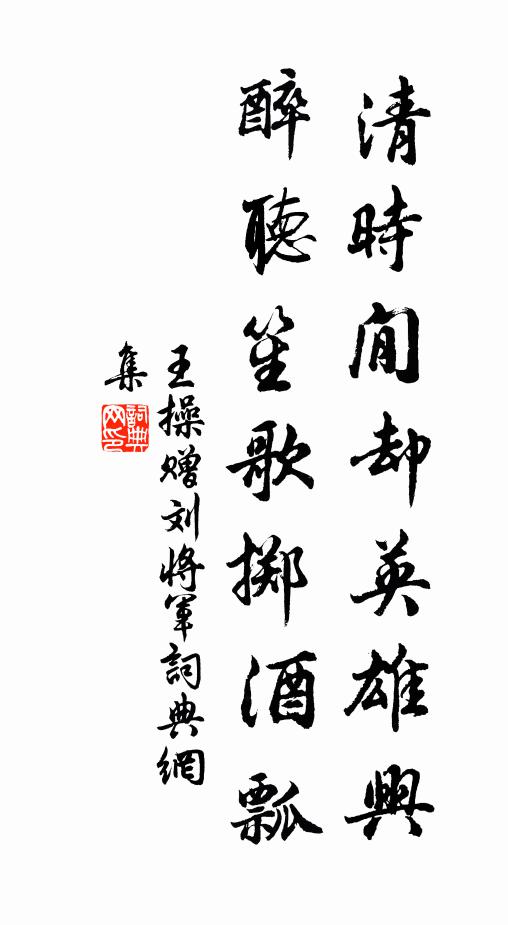 清時閒却英雄興
醉聽笙歌擲酒瓢
王操贈刘將軍詞典網
集
詞典
网印